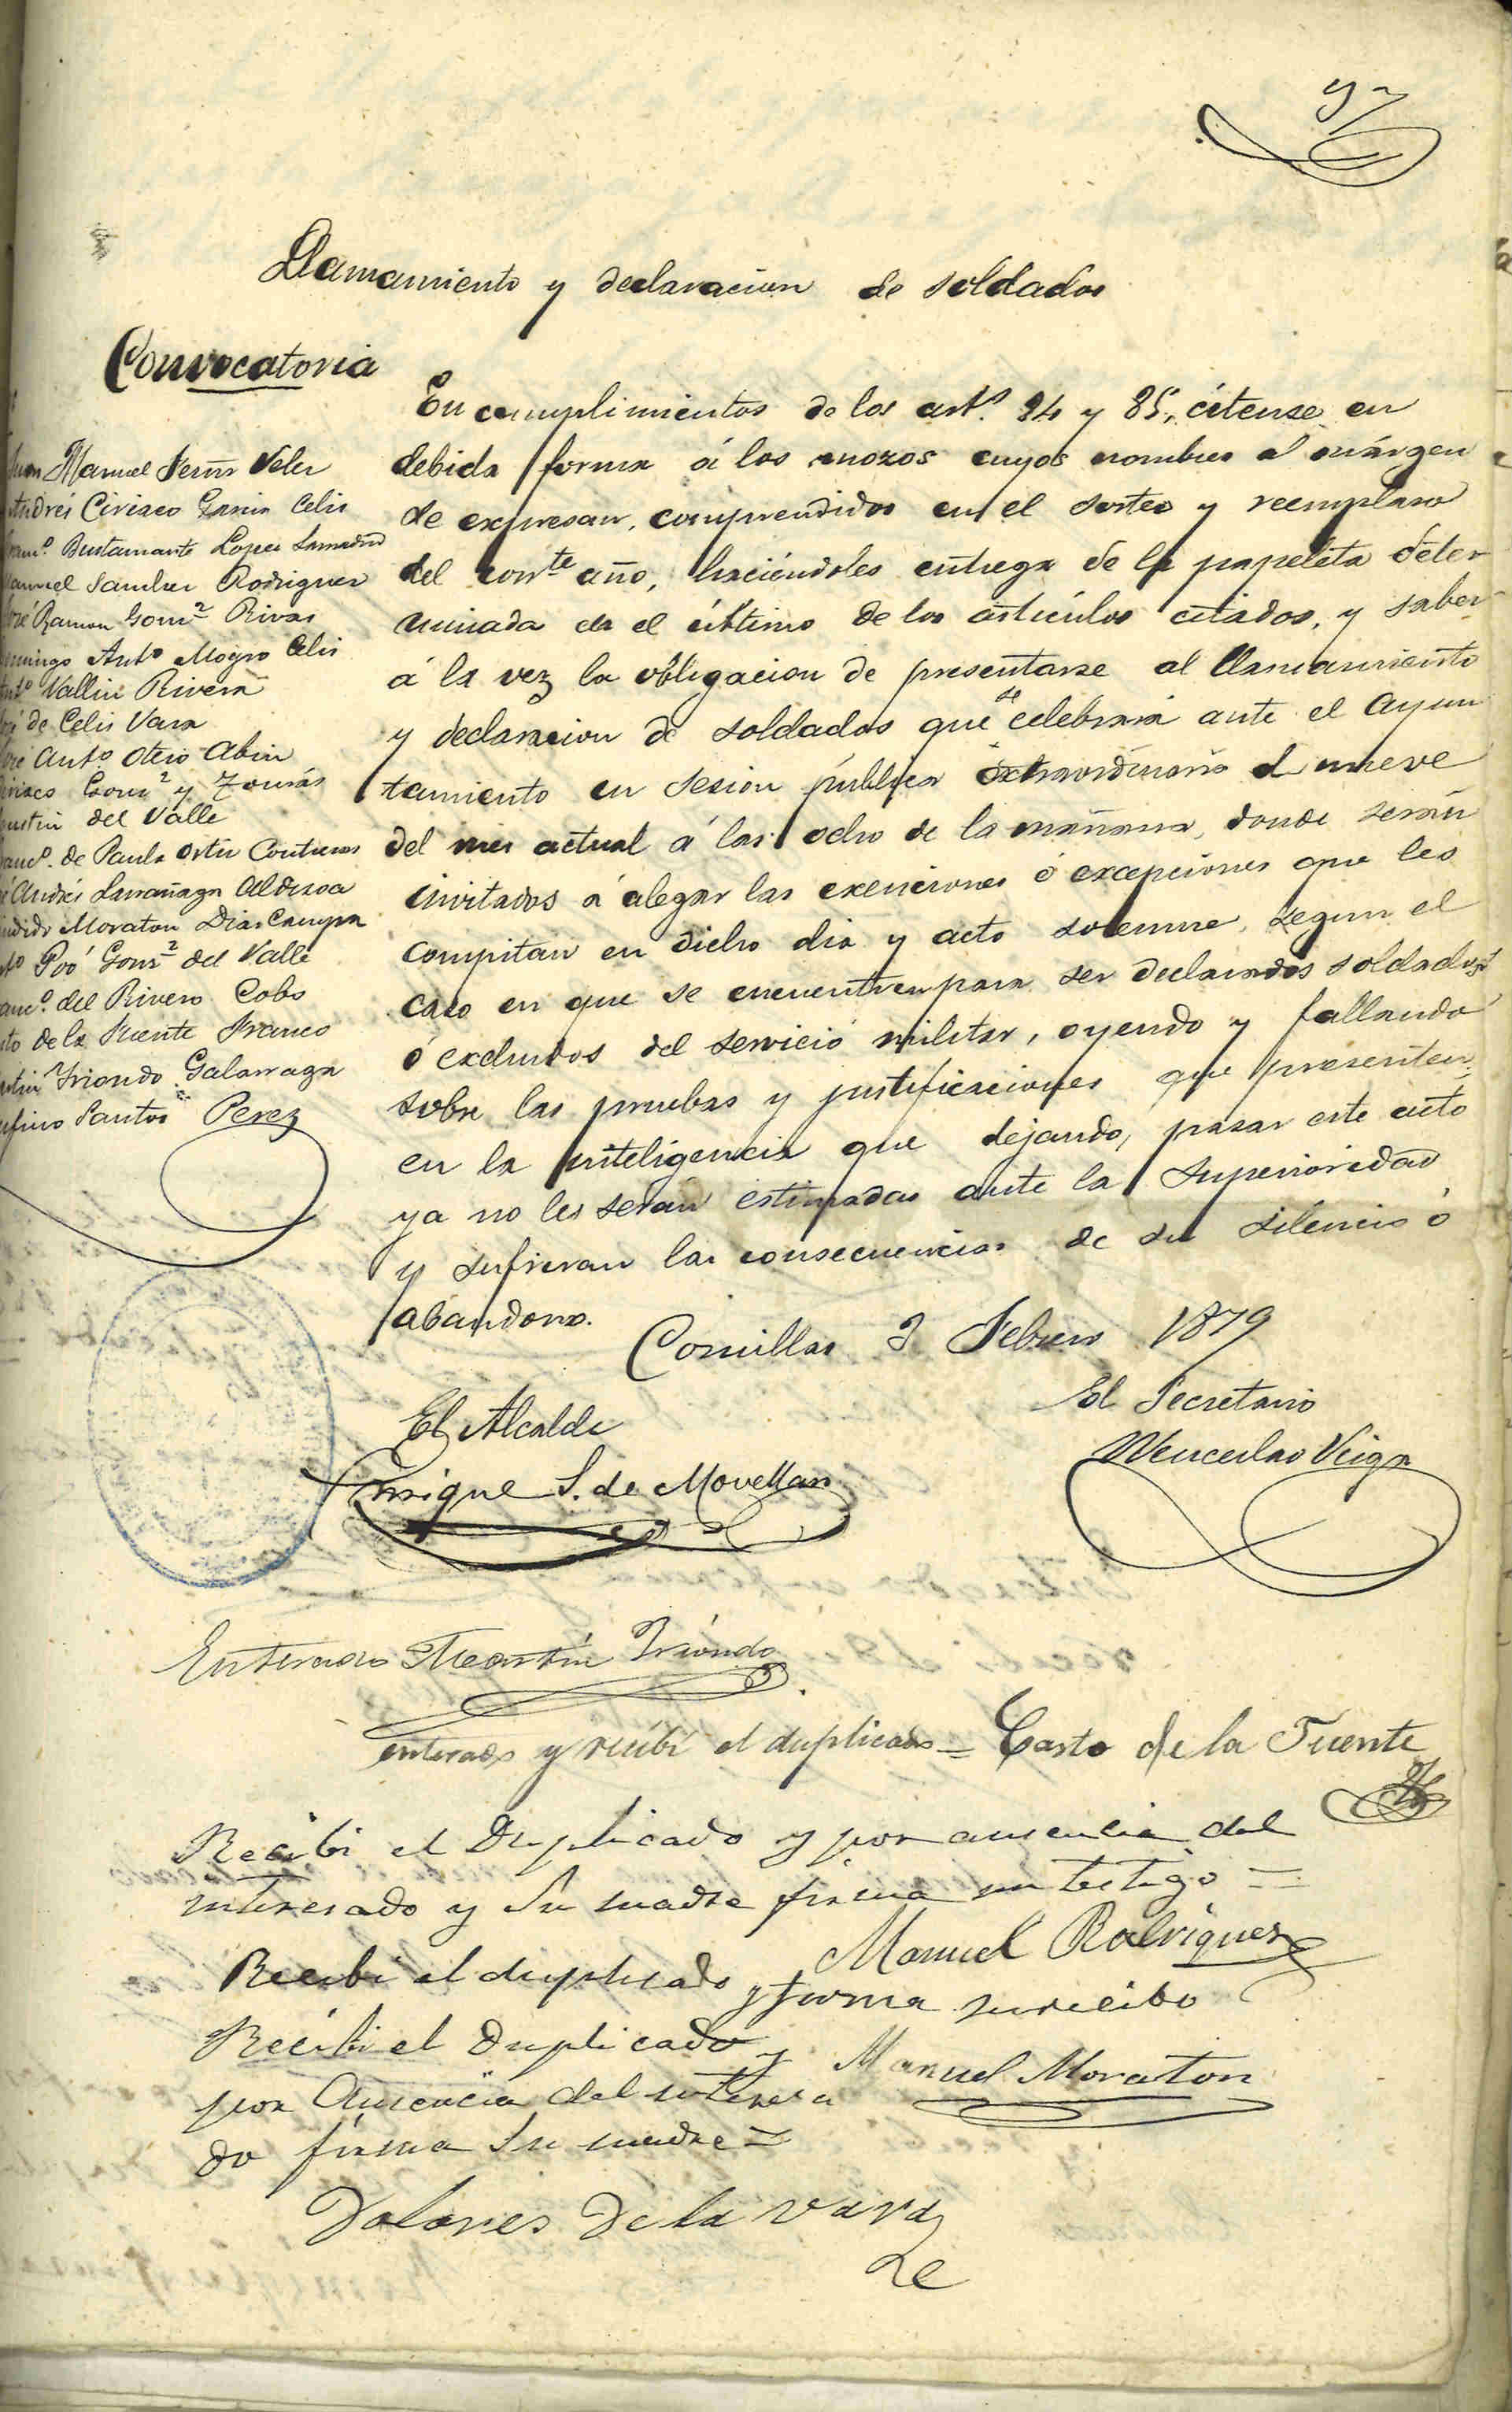 97
Llamamiento y declaracion de soldados
Convocatoria
Juan Manuel Fernz Velez
Andrés Ciriaco Garcia Celis
Franco. Bustamante Lopez Lamadrid
Manuel Sanchez Rodriguez
José Ramon Gomz Rivas
Domingo Anto Mogro Celis
Anto Vallin Rivera
José de Celis Vara
José Anto Otero Abin
Ciriaco Gomz y Tomás
Agustin del Valle
Franco. de Paula Ortiz Contreras
José Andrés Larrañaga Aldizoa
Candido Moraton Diaz Campa
Anto Poó Gonz del Valle
Franco. del Rivero Cobo
Casto de la Fuente Franco
Martin Yriondo Galarraga
Rufino Santos Perez
En cumplimientos de los arts. 84 y 85, cítense en
debida forma á los mozos cuyos nombres al márgen
de expresan, comprendidos en el sorteo y reemplazo
del corrte año, haciéndoles entrega de la papeleta deter-
minada en el último de los artículos citados, y saber
á la vez la obligacion de presentarse al llamamiento
y declaracion de soldados que se celebrará ante el Ayun
tamiento en sesion pública extraordinaria el nueve
del mes actual á las ocho de la mañana, donde serán
invitados á alegar las exenciones ó excepciones que les
compitan en dicho dia y acto solemne, segun el
caso en que se encuentren para ser declarados soldados
ó excluidos del servicio militar, oyendo y fallando
sobre las pruebas y justificaciones que presenten,
en la inteligencia que dejando pasar este acto
ya no les serán estimadas ante la Superioridad
y sufriran las consecuencias de su silencio ó
abandono.
Comillas 3 Febrero 1879
El Alcalde
Enrique S. de Movellan
El Secretario
Wenceslao Veiga
Enterado Martin Yriondo
enterado y recibí el duplicado = Casto de la Fuente
Recibi el Duplicado y por ausencia del
interesado y su madre firma un testigo =
Manuel Rodriguez
Recibi el duplicado y firma su recibo
Manuel Moraton
Recibi el Duplicado y
por Ausencia del interesa
do firma su madre =
Dolores De la vara